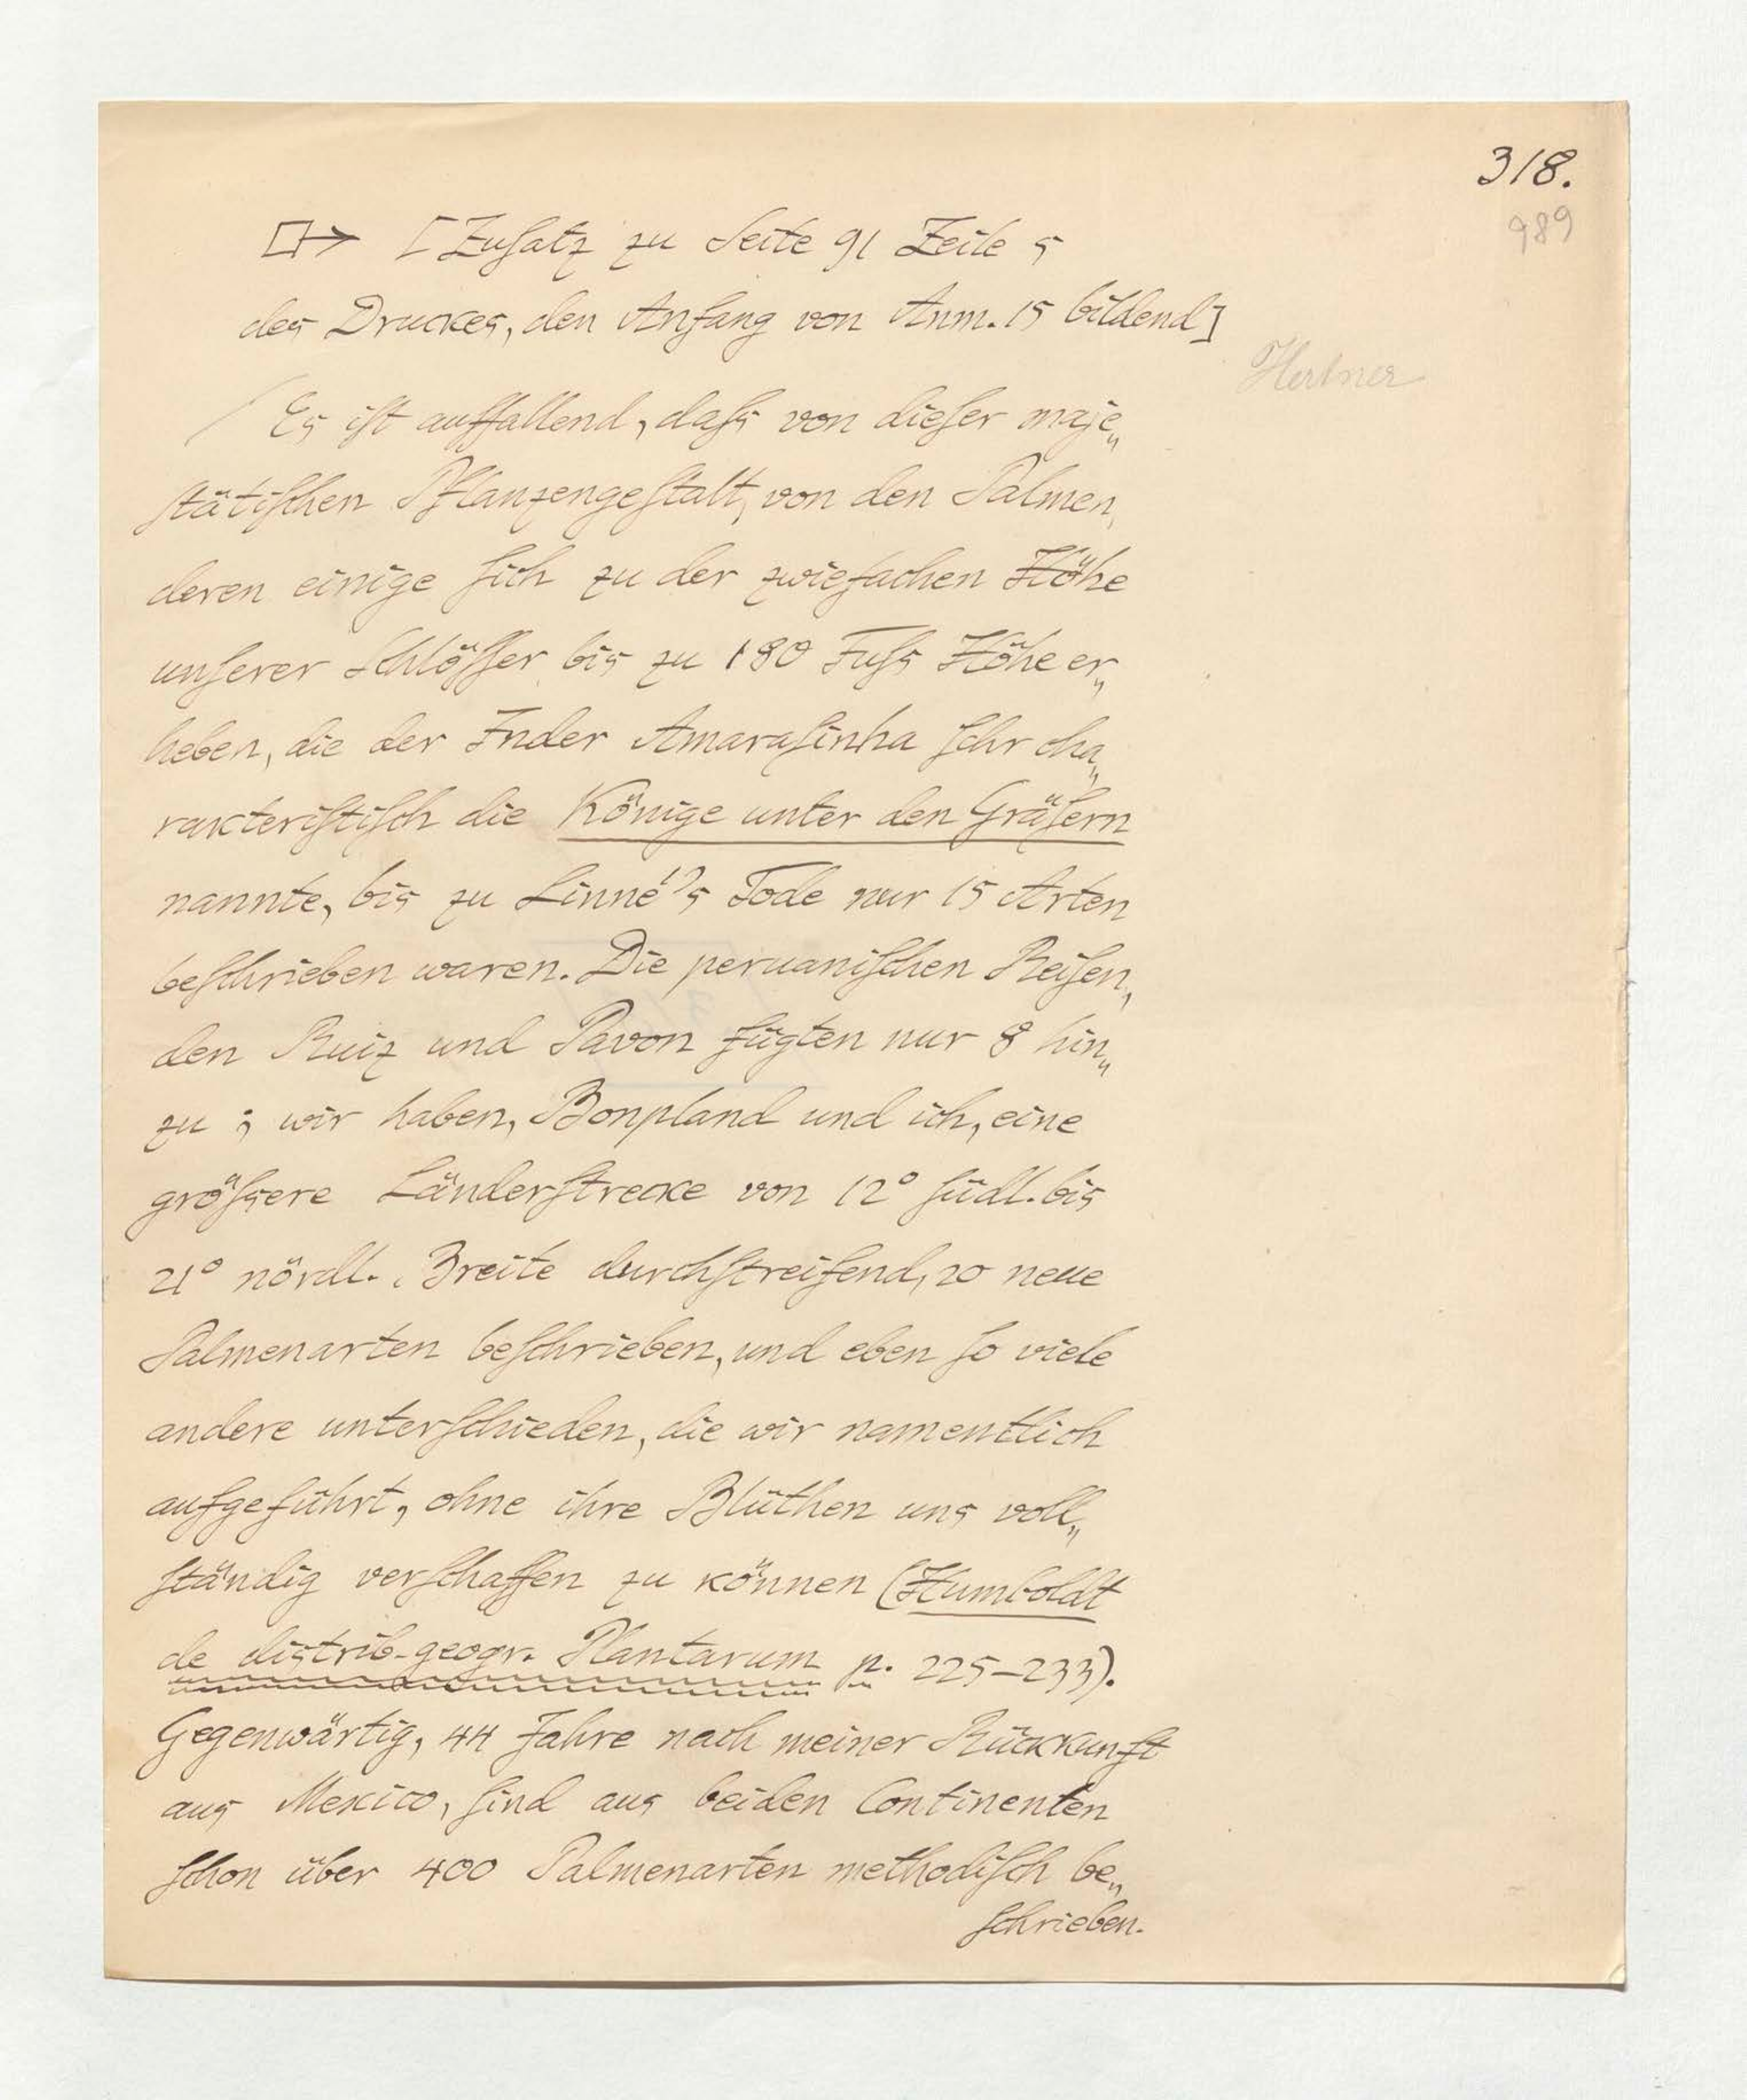 318.
989
[Zusatz zu Seite 91 Zeile 5
des Druckes, den Anfang von Anm. 15 bildend]
Hertner
Es ist auffallend, dass von dieser maje„
stätischen Pflanzengestalt, von den Palmen,
deren einige sich zu der zwiefachen Höhe
unserer Schlösser bis zu 180 Fuss Höhe er„
heben, die der Inder Amarasinha sehr cha„
rakteristisch die Könige unter den Gräsern
nannte, bis zu Linné's Tode nur 15 Arten
beschrieben waren. Die peruanischen Reisen„
den Ruiz und Pavon fügten nur 8 hin„
zu; wir haben, Bonpland und ich, eine
grössere Länderstrecke von 12° südl. bis
21° nördl. Breite durchstreifend, 20 neue
Palmenarten beschrieben, und eben so viele
andere unterschieden, die wir namentlich
aufgeführt, ohne ihre Blüthen uns voll„
ständig verschaffen zu können (Humboldt
de distrib. geogr. Plantarum p. 225–233).
Gegenwärtig, 44 Jahre nach meiner Rückkunft
aus Mexico, sind aus beiden Continenten
schon über 400 Palmenarten methodisch be„
schrieben.